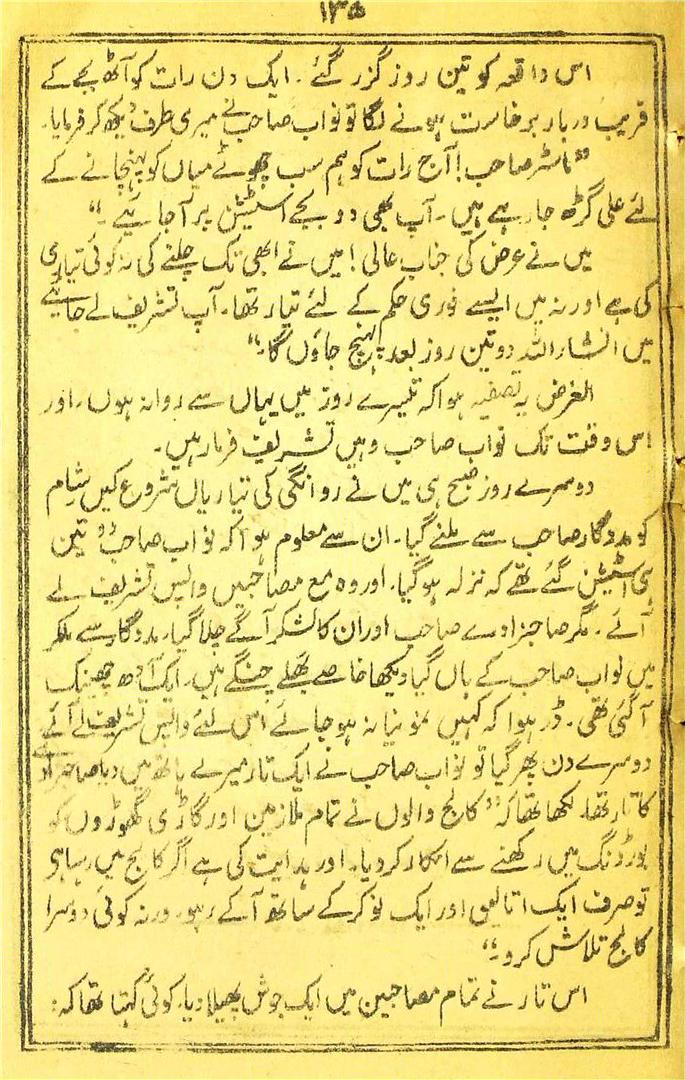 ۱۳۵
اس واقعہ کو تین روز گزر گئے۔ ایک دن رات کو آٹھ بجے کے
قریب دربار برخاست ہونے لگا تو نواب صاحب نے میری طرف دیکھ کر فرمایا۔
”ماسٹر صاحب! آج رات کو ہم سب چھوٹے میاں کو پہنچانے کے
لئے علی گڑھ جا رہے ہیں۔ آپ بھی دو بجے اسٹیشن پر آ جائیے۔“
میں نے عرض کی جناب عالی! میں نے ابھی تک چلنے کی نہ کوئی تیاری
کی ہے اور نہ میں ایسے فوری حکم کے لئے تیار تھا۔ آپ تشریف لے جائیے
میں انشاء اللہ دو تین روز بعد پہنچ جاؤں گا۔“
الغرض یہ تصفیہ ہوا کہ تیسرے روز میں یہاں سے روانہ ہوں۔ اور
اس وقت تک نواب صاحب وہیں تشریف فرما رہیں۔
دوسرے روز صبح ہی میں نے روانگی کی تیاریاں شروع کیں شام
کو مددگار صاحب سے ملنے گیا۔ ان سے معلوم ہوا کہ نواب صاحب دو تین
ہی اسٹیشن گئے تھے کہ نزلہ ہو گیا۔ اور وہ مع مصاحبین واپس تشریف لے
آئے۔ مگر صاحبزادے صاحب اور ان کا لشکر آگے چلا گیا۔ مددگار سے ملکر
میں نواب صاحب کے ہاں گیا دیکھا خاصے بھلے چنگے ہیں۔ ایک آدھ چھینک
آ گئی تھی۔ ڈر ہوا کہ کہیں نمونیا نہ ہو جائے اس لئے واپس تشریف لے آئے
دوسرے دن پھر گیا تو نواب صاحب نے ایک تار میرے ہاتھ میں دیا صاحبزادے
کا تار تھا۔ لکھا تھا کہ ”کالج والوں نے تمام ملازمین اور گاڑی گھوڑوں کو
بورڈنگ میں رکھنے سے انکار کر دیا۔ اور ہدایت کی ہے اگر کالج میں رہنا ہو
تو صرف ایک اتالیق اور ایک نوکر کے ساتھ آ کے رہو۔ ورنہ کوئی دوسرا
کالج تلاش کرو۔“
اس تار نے تمام مصاحبین میں ایک جوش پھیلا دیا۔ کوئی کہتا تھا کہ: